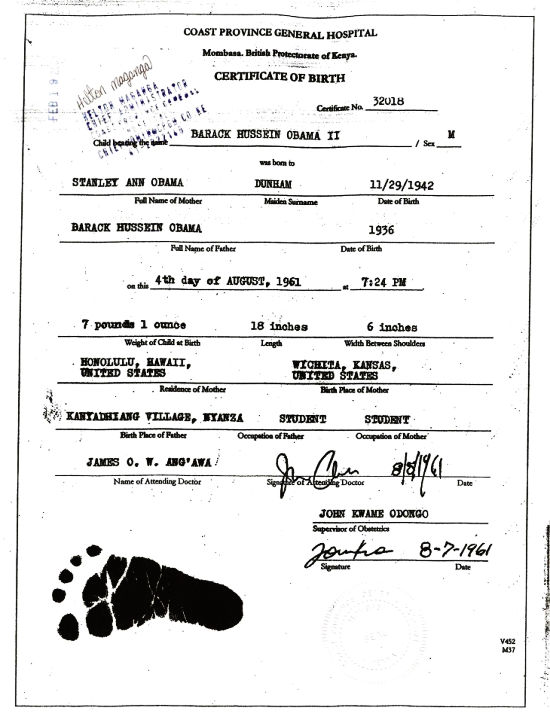 COAST PROVINCE GENERAL HOSPITAL
Mombasa. British Protectorate of Kenya.
CERTIFICATE OF BIRTH
FEB 19
Hilton maganga
HELTON MAGANGA
CHIEF ADMINISTRATOR
Certificate No. 32018
Child bearing the name BARACK HUSSEIN OBAMA II / Sex M
was born to
STANLEY ANN OBAMA DUNHAM 11/29/1942
Full Name of Mother Maiden Surname Date of Birth
BARACK HUSSEIN OBAMA 1936
Full Name of Father Date of Birth
on this 4th day of AUGUST, 1961 at 7:24 PM
7 pounds 1 ounce 18 inches 6 inches
Weight of Child at Birth Length Width Between Shoulders
HONOLULU, HAWAII, WICHITA, KANSAS,
UNITED STATES UNITED STATES
Residence of Mother Birth Place of Mother
KANYADHIANG VILLAGE, NYANZA STUDENT STUDENT
Birth Place of Father Occupation of Father Occupation of Mother
JAMES O. W. ANG'AWA 8/8/1961
Name of Attending Doctor Signature of Attending Doctor Date
JOHN KWAME ODONGO
Supervisor of Obstetrics
8-7-1961
Signature Date
V452
M37